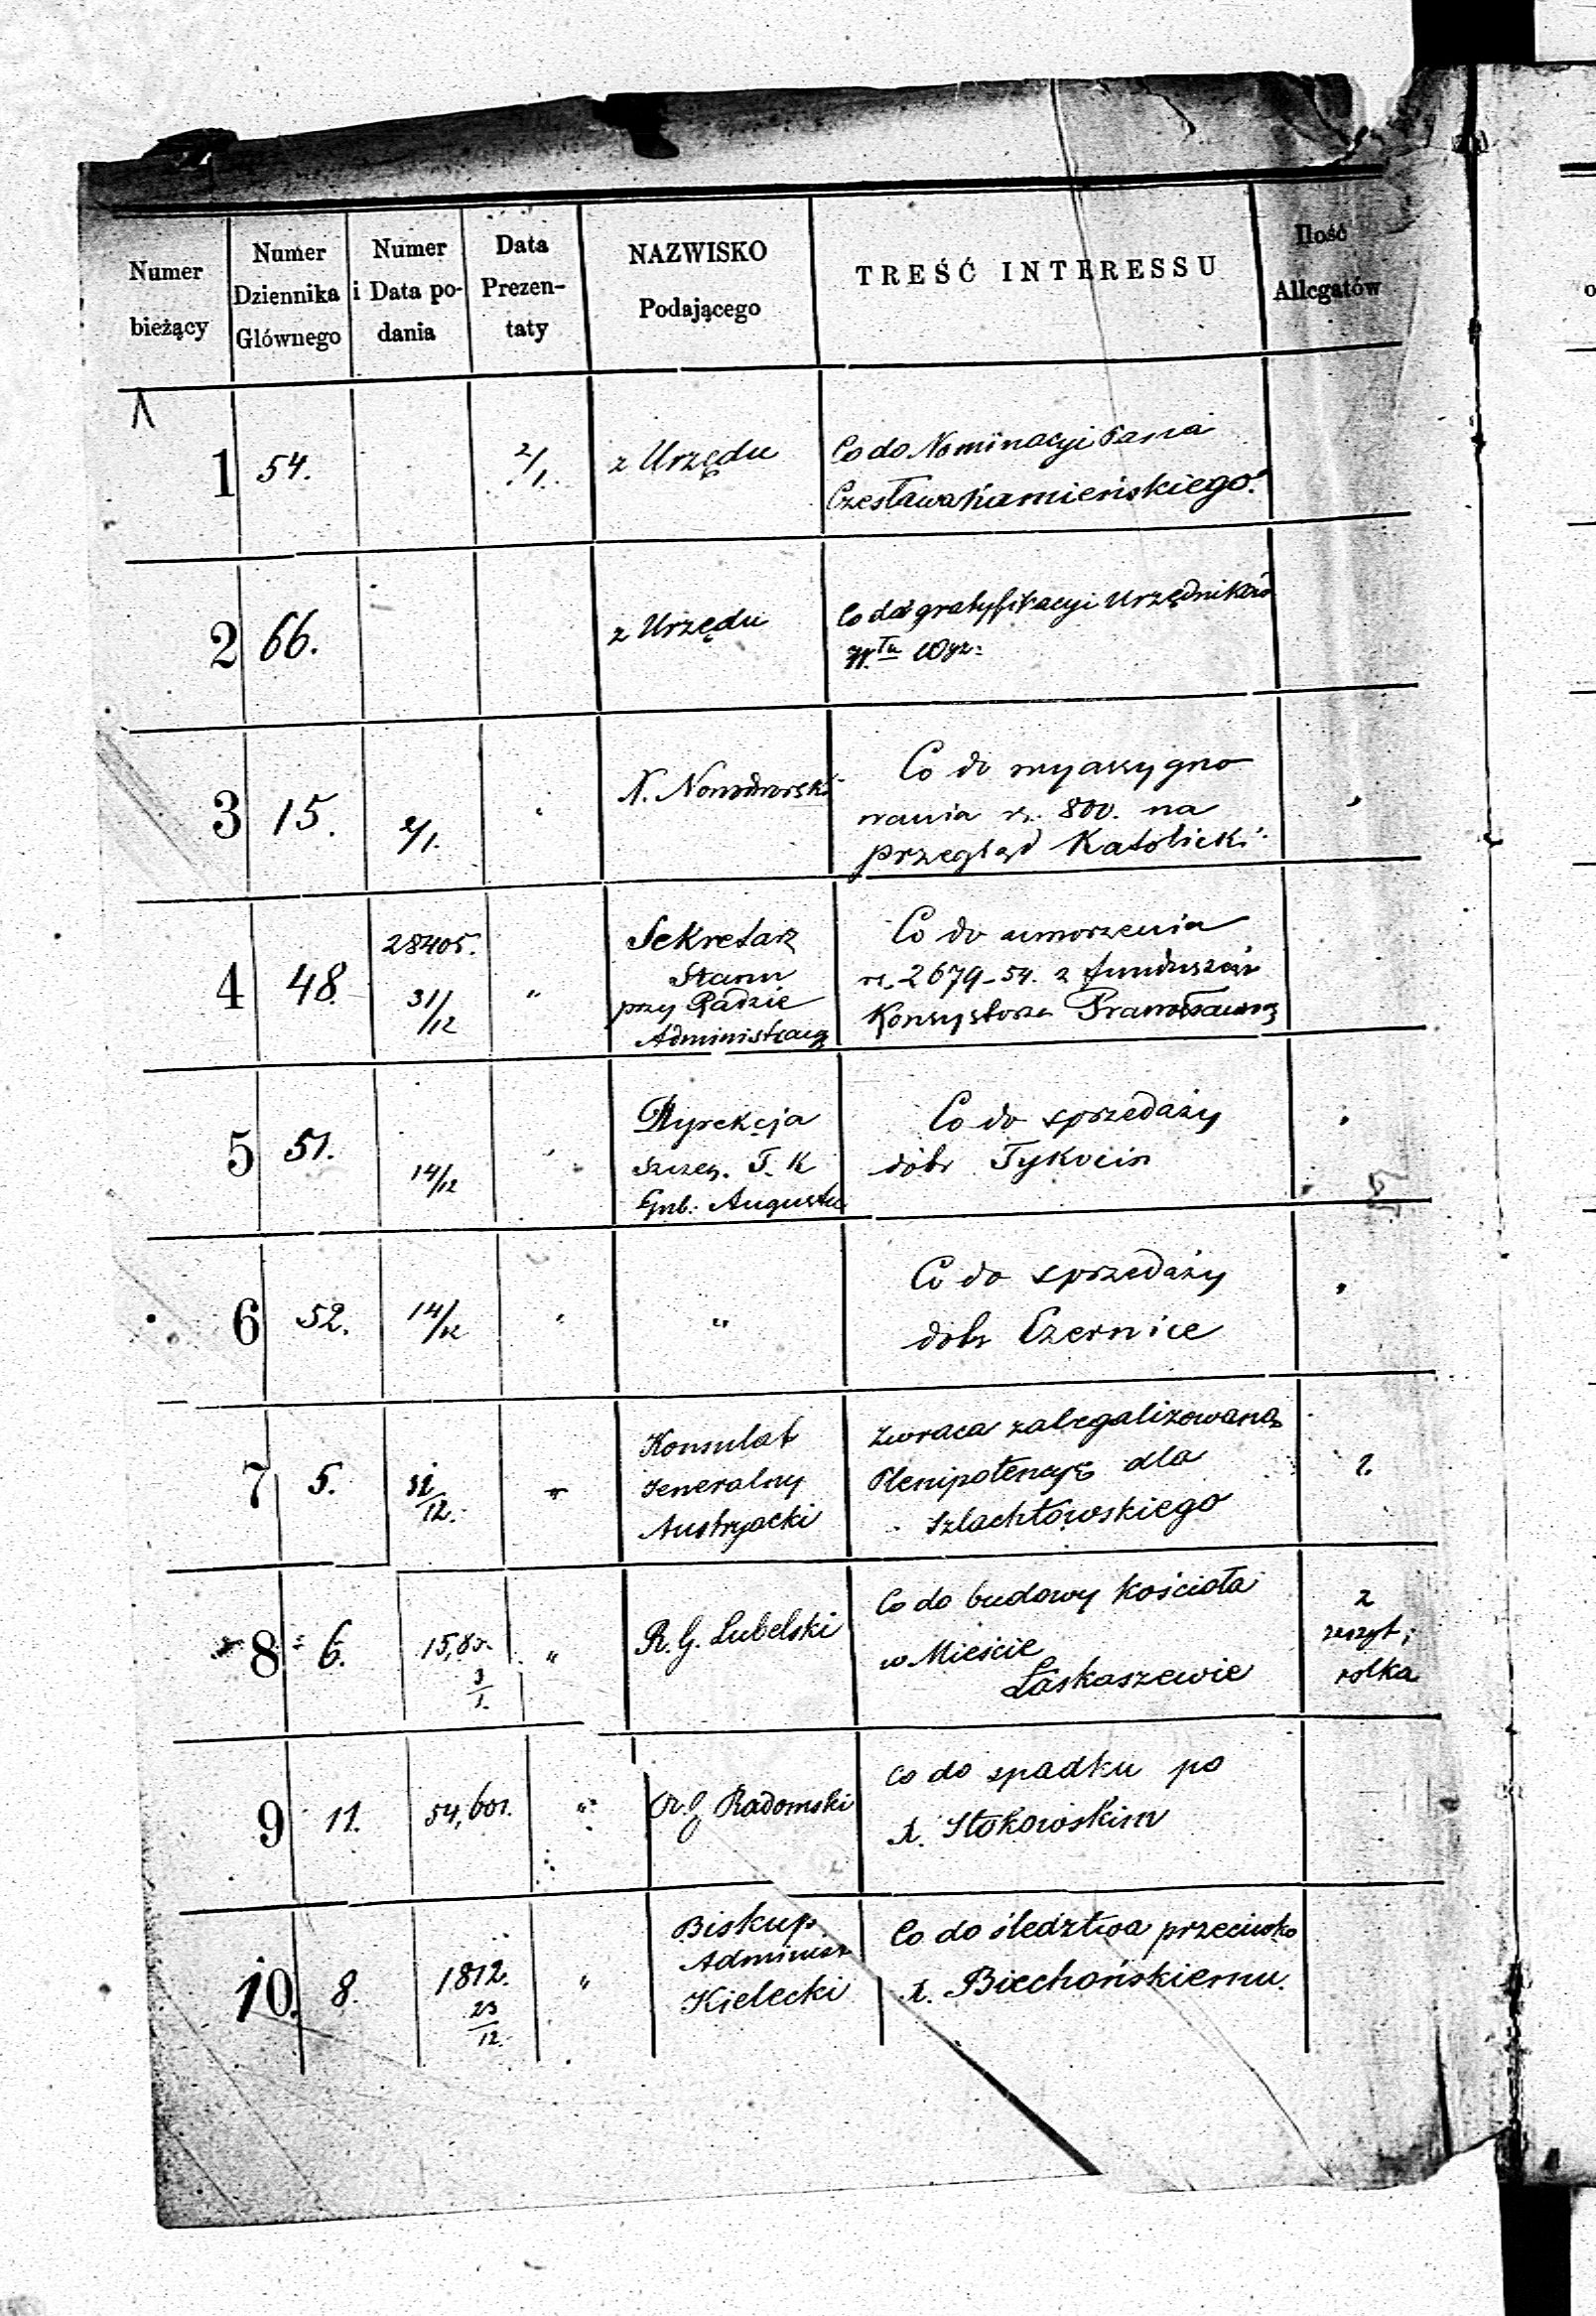 Numer bieżący
Numer Dziennika Głównego
Numer i Data podania
Data Prezentaty
NAZWISKO Podającego
TREŚĆ INTERESSU
Ilość Allegatów
1 54. 2/1. z Urzędu
Co do Nominacyi Pana
Czesława Kamieńskiego.
2 66. z Urzędu
Co do gratyfikacyi Urzędników
3 15. 2/1. X. Nowodworski
Co do wyassygno
wania rs. 800. na
Przegląd Katolicki
4 48. 28405. 31/12 "
Sekretarz
Stanu
przy Radzie
Administracyj
Co do umorzenia
rs. 2679-54. z funduszów
Konsystorza Prawosławneg
5 51. 14/12 "
Dyrekcja
Szczeg. T. K
Gub. Augusto
Co do sprzedaży
dóbr Tykocin
6 52. 14/12 " "
Co do sprzedaży
dóbr Czernice
7 5. 12. "
Konsulat
Jeneralny
Austryacki
Zwraca zalegalizowaną
Plenipotencyę dla
Szlachtowskiego
2.
8 6. 3/1. "
R. G. Lubelski
Co do budowy Kościoła
w Mieście
Łaskaszewie
2
zeszyt,
rolka
9 11. 54,601. "
R. G Radomski
Co do spadku po
X. Stokowskim
10. 8. 1812. 23/12. "
Biskup
Administ
Kielecki
Co do śledztwa przeciwko
X. Biechońskiemu.